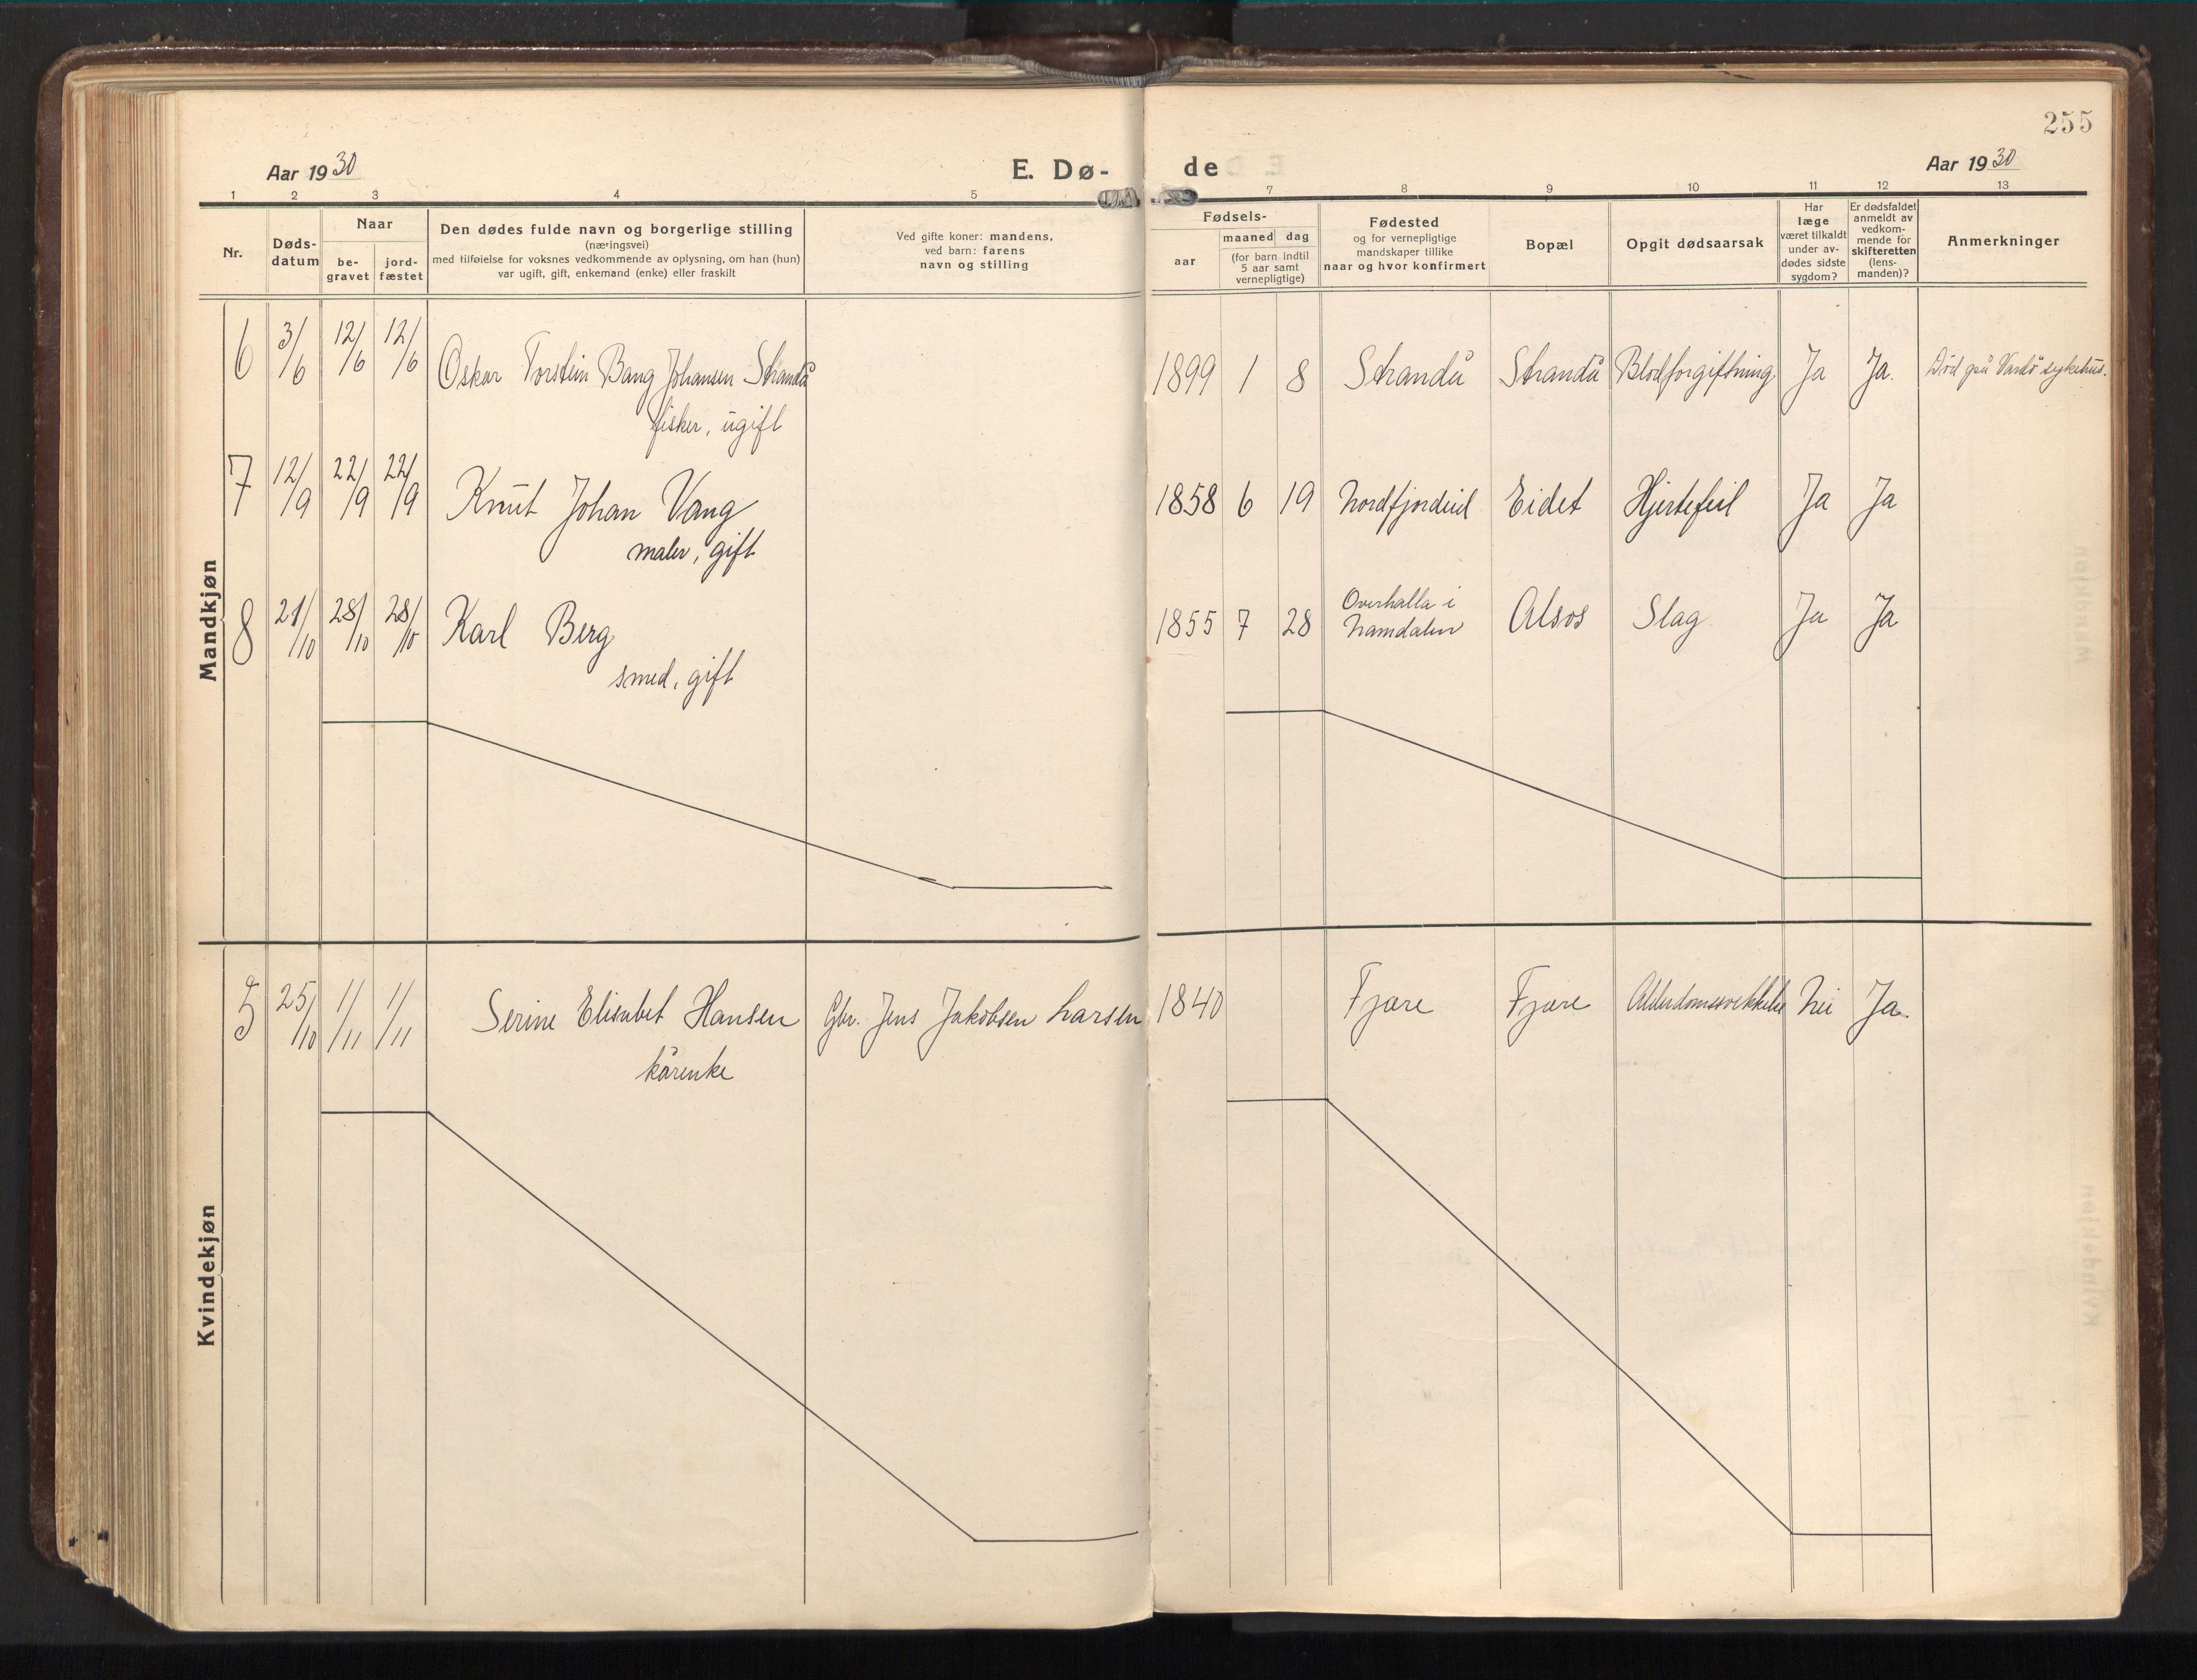 255
Aar 1930
E. Dø-
de
Aar 1930
1 2 3 4 5 7 8 9 10 11 12 13
Nr.
Døds-
datum
Naar
be-
gravet
jord-
fæstet
Den dødes fulde navn og borgerlige stilling
(næringsvei)
med tilføielse for voksnes vedkommende av oplysning, om han (hun)
var ugift, gift, enkemand (enke) eller fraskilt
Ved gifte koner: mandens,
ved barn: farens
navn og stilling
Fødsels-
aar
maaned dag
(for barn indtil
5 aar samt
vernepligtige)
Fødested
og for vernepligtige
mandskaper tillike
naar og hvor konfirmert
Bopæl
Opgit dødsaarsak
Har
læge
været tilkaldt
under av-
dødes sidste
sygdom?
Er dødsfaldet
anmeldt av
vedkom-
mende for
skifteretten
(lens-
manden)?
Anmerkninger
Mandkjøn
6 3/6 12/6 12/6 Oskar Torstein Bang Johansen Strandå 1899 1 8 Strandå Strandå Blodforgiftning Ja Ja. Död på Vardö sykehus.
fisker, ugift
7 12/9 22/9 22/9 Knut Johan Vang 1858 6 19 Nordfjordeid Eidet Hjertefeil Ja Ja
maler, gift
8 21/10 28/10 28/10 Karl Berg 1855 7 28 Overhalla i
Namdalen Alsos Slag Ja Ja
smed, gift
Kvindekjøn
5 25/10 1/11 1/11 Serine Elisabet Hansen Gbr. Jens Jakobsen Larsen 1840 Fjære Fjære Alderdomssvekkelse Nei Ja.
kårenke